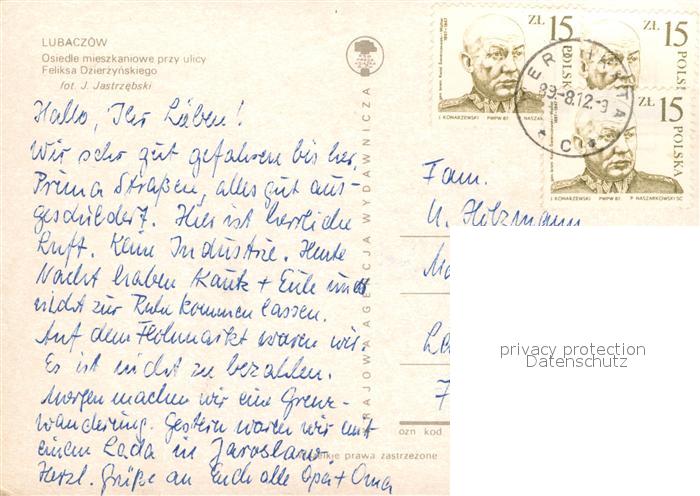 LUBACZÓW
Osiedle mieszkaniowe przy ulicy
Feliksa Dzierżyńskiego
fot. J. Jastrzębski
Hallo, Ihr Lieben!
Wir sehr gut gefahren bis her,
Prima Straßen, alles gut aus-
geschildert. Hier ist herrliche
Luft. Keine Industrie. Heute
Nacht haben Kautz + Eule uns
nicht zur Ruhe kommen lassen.
Auf dem Flohmarkt waren wir.
Es ist nicht zu bezahlen.
Morgen machen wir eine Grenz-
wanderung. Gestern waren wir mit
einem Lada in Jaroslaw.
Herzl. Grüße an Euch alle Opa + Oma
KRAJOWA AGENCJA WYDAWNICZA
ZŁ 15
POLSKA
J. KONARZEWSKI PWPW 87
ZŁ 15
POLSKA
ZŁ 15
POLSKA
J. KONARZEWSKI PWPW 87 P. NASZARKOWSKI SC.
89-8.12-9
Fam.
ozn kod
prawa zastrzeżone
privacy protection
Datenschutz